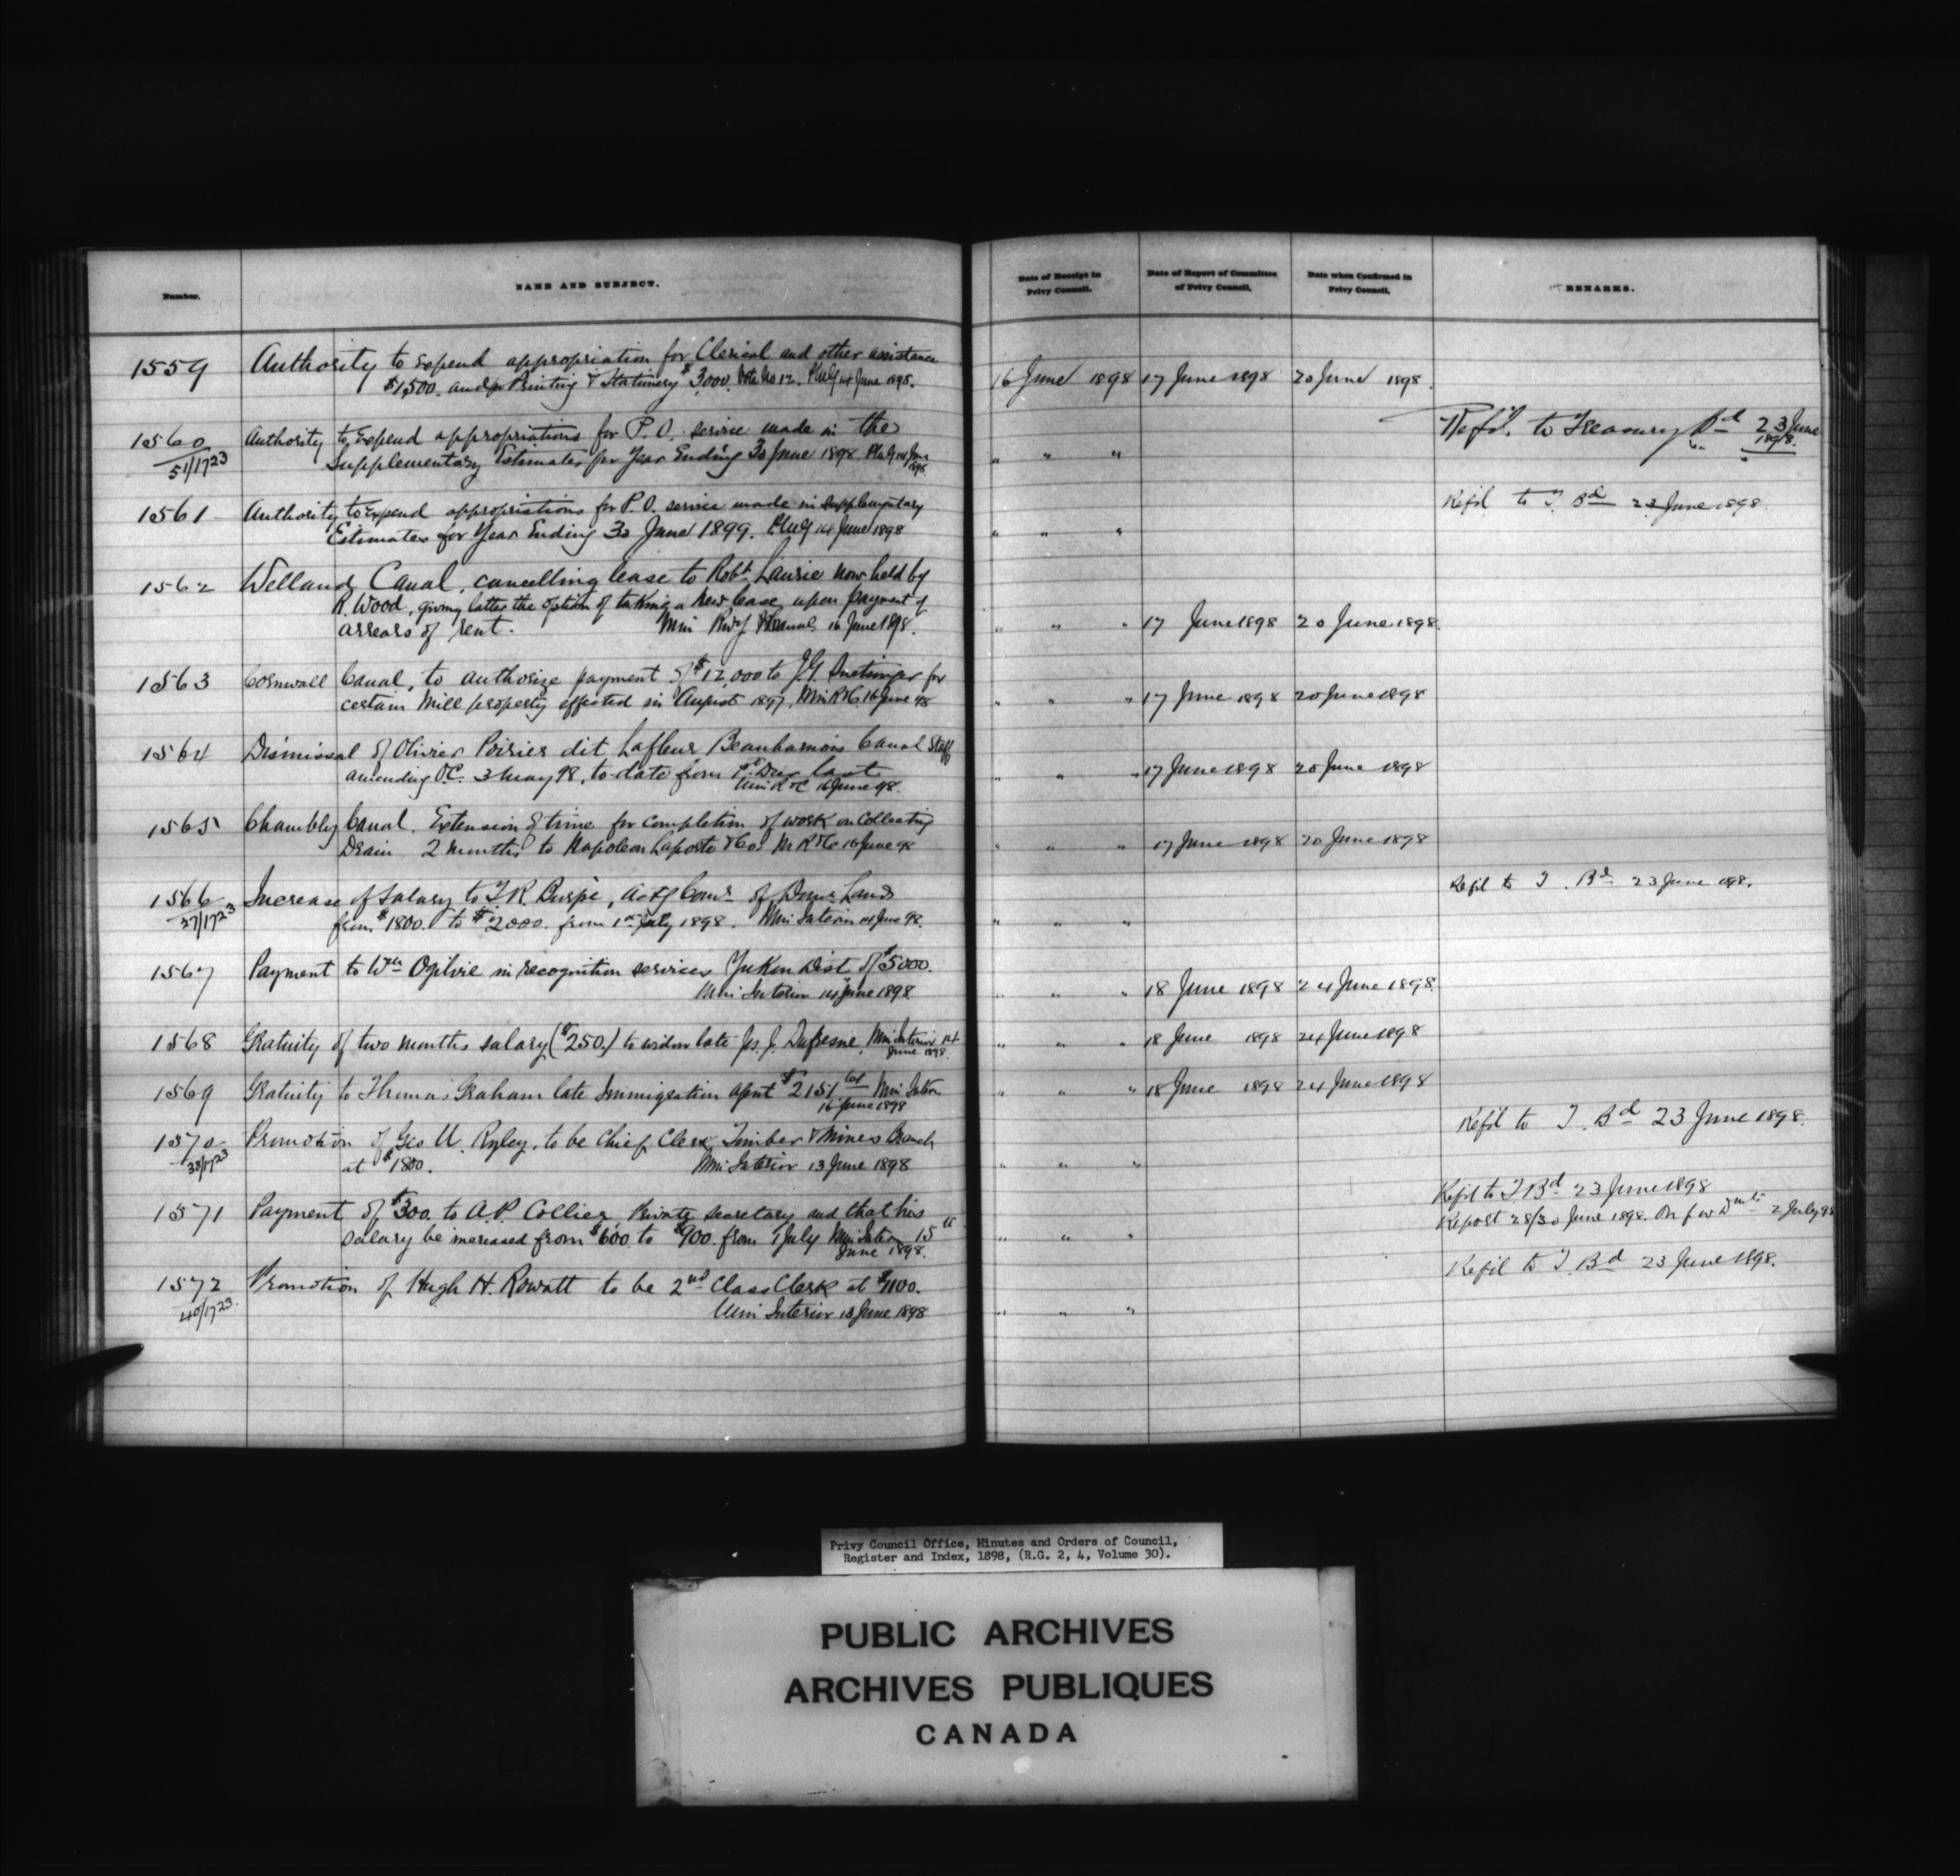 Number.
NAME AND SUBJECT.
Date of Receipt in Privy Council.
Date of Report of Committee of Privy Council.
Date when Confirmed in Privy Council.
REMARKS.
1559 Authority to expend appropriation for Clerical and other assistance
$1,500. and for Printing & Stationery $3,000. Vote No 12. PMG 14 June 1898. 16 June 1898 17 June 1898 20 June 1898.
1560 Authority to Expend appropriations for P.O. service made in the Refd. to Treasury Bd 23 June 1898.
51/1723 Supplementary Estimates for Year Ending 30 June 1898. PMG 14 June 1898 " " "
1561 Authority to Expend appropriations for P.O. service made in Supplementary Refd to T. Bd 23 June 1898.
Estimates for Year Ending 30 June 1899. PMG 14 June 1898 " " "
1562 Welland Canal, cancelling lease to Robt Laurie now held by
R. Wood, giving latter the option of taking a new lease upon payment of
arrears of rent. Min Rwy & Canals 16 June 1898. " " " 17 June 1898 20 June 1898.
1563 Cornwall Canal, to authorize payment of $12,000 to J.G. for
certain Mill property effected in August 1897. Min R&C 16 June 98 " " " 17 June 1898 20 June 1898
1564 Dismissal of Olivier Poirier dit Lafleur Beauharnois Canal Staff
amending OC. 3 May 98, to date from 1st Decr last " " " 17 June 1898 20 June 1898
Min R&C 16 June 98.
1565 Chambly Canal. Extension of time for completion of work on Collecting
Drain 2 months to Napoleon Laporte & Co. M R&C 16 June 98 " " " 17 June 1898 20 June 1898
1566 Increase of Salary to T.R. Burpé, Actg Comr of Domn Lands Refd to T. Bd 23 June 1898.
37/1723 from $1800. to $2000. from 1st July 1898. Min Interior 14 June 98. " " "
1567 Payment to Wm Ogilvie in recognition services Yukon Dist of $5000.
Min Interior 14 June 1898 " " " 18 June 1898 24 June 1898.
1568 Gratuity of two months salary ($250.) to widow late J. Dufresne. Min Interior 14 June 1898. " " " 18 June 1898 24 June 1898
1569 Gratuity to Thomas Graham late Immigration agent $2151 Min Interior " " " 18 June 1898 24 June 1898
16 June 1898
1570 Promotion of Geo U. Ryley, to be Chief Clerk Timber & Mines Branch Refd to T. Bd 23 June 1898.
38/1723 at $1800. Min Interior 13 June 1898 " " "
1571 Payment of $300. to A.P. Collier, Private Secretary and that his Refd to T Bd 23 June 1898
salary be increased from $600. to $900. from 1 July Min Interior 15th June 1898. " " " Report 28/30 June 1898. 2 July 98
1572 Promotion of Hugh H. Rowatt to be 2nd Class Clerk at $1100. Refd to T. Bd 23 June 1898.
40/1723. Min Interior 13 June 1898 " " "
Privy Council Office, Minutes and Orders of Council,
Register and Index, 1898, (R.G. 2, 4, Volume 30).
PUBLIC ARCHIVES
ARCHIVES PUBLIQUES
CANADA